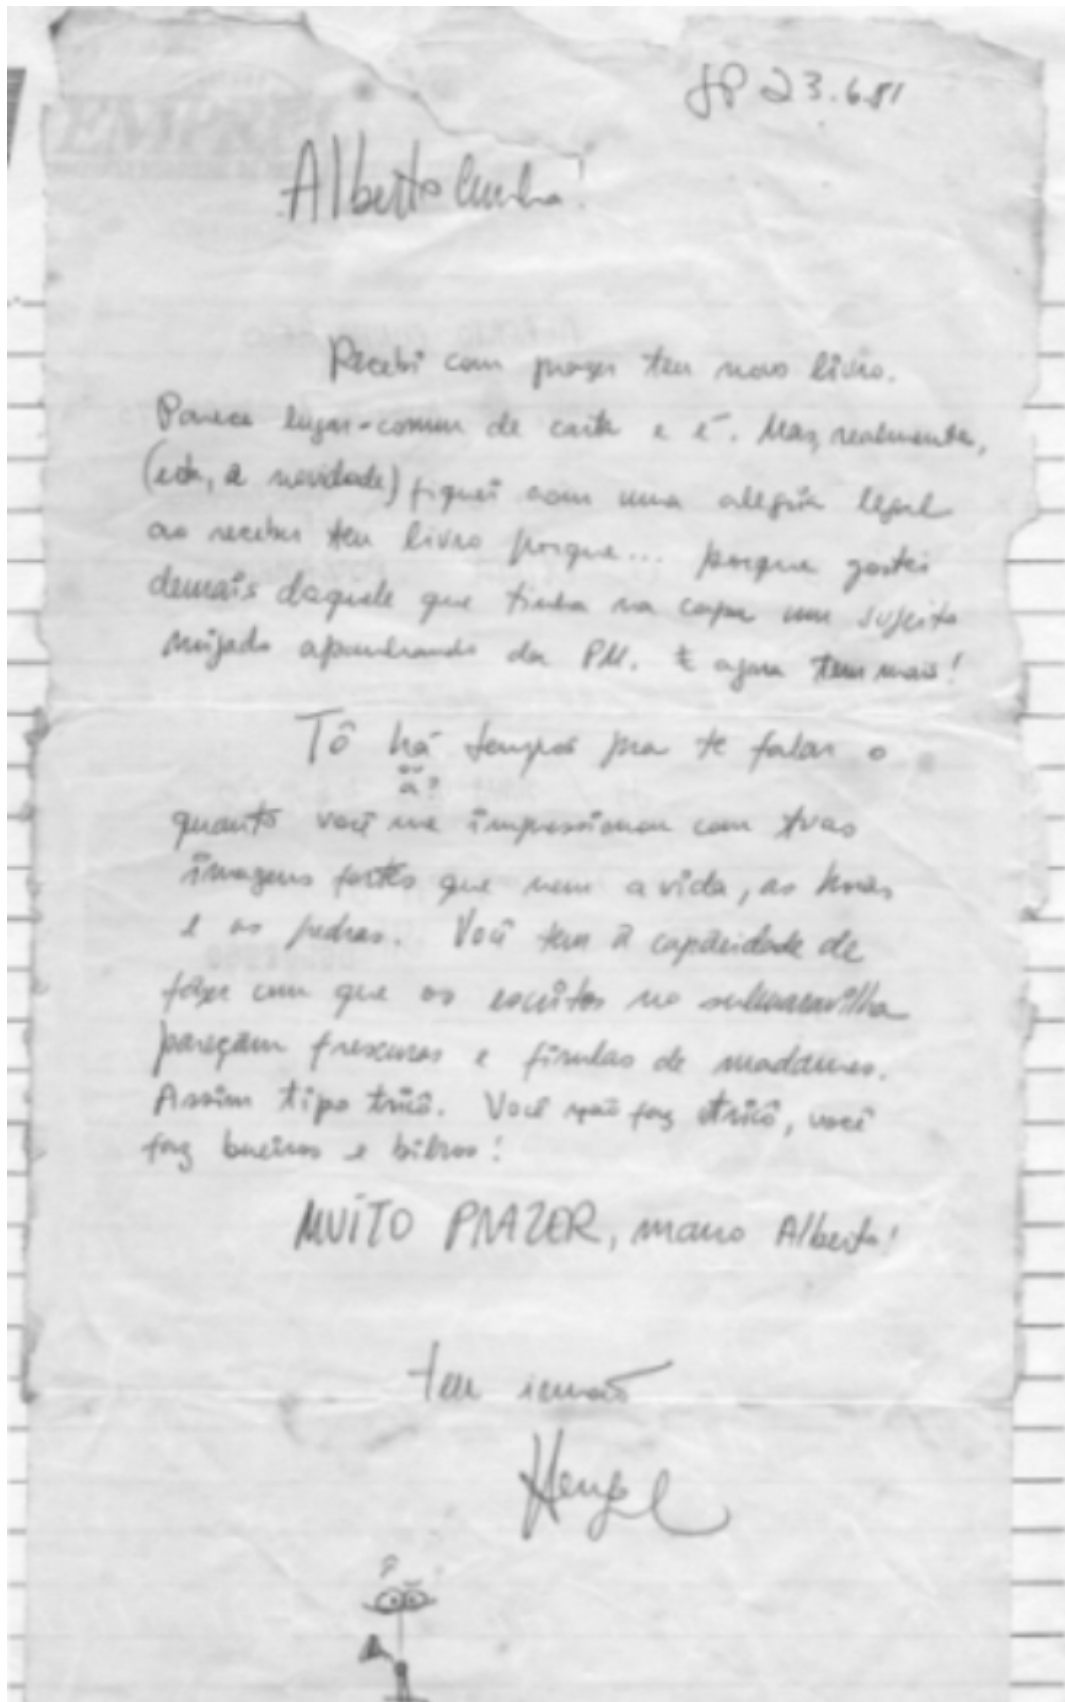 SP 23.6.81
EMPREL
Alberto Cunha!
Recebi com prazer teu novo livro.
Parece lugar-comum de carta e é. Mas, realmente,
(eta, a novidade) fiquei com uma alegria legal
ao receber teu livro porque... porque gostei
demais daquele que tinha na capa um sujeito
mijado apanhando da PM. E agora tem mais!
Tô há tempos pra te falar o
a?
quanto você me impressionou com tuas
imagens fortes que nem a vida, as
e as pedras. Você tem a capacidade de
fazer com que os escritos no sulmaravilha
pareçam frescuras e firulas de madames.
Assim tipo tricô. Você não faz tricô, você
faz bueiros e bilros!
MUITO PRAZER, mano Alberto!
teu irmão
Henfil
?